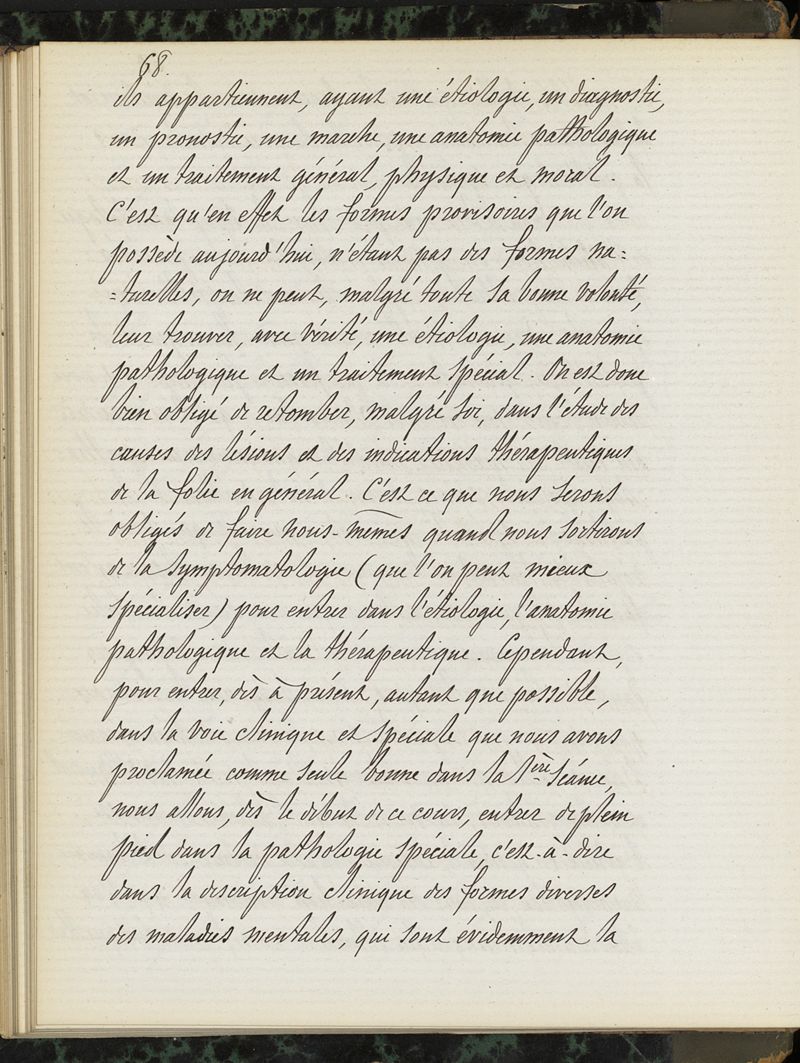 68.
ils appartiennent, ayant une étiologie, un diagnostic,
un pronostic, une marche, une anatomie pathologique
et un traitement général, physique et moral.
C'est qu'en effet les formes provisoires que l'on
possède aujourd'hui, n'étant pas des formes na=
=turelles, on ne peut, malgré toute sa bonne volonté,
leur trouver, avec vérité, une étiologie, une anatomie
pathologique et un traitement spécial. On est donc
bien obligé de retomber, malgré soi, dans l'étude des
causes des lésions et des indications thérapeutiques
de la folie en général. C'est ce que nous serons
obligés de faire nous-mêmes quand nous sortirons
de la symptomatologie (que l'on peut mieux
spécialiser) pour entrer dans l'étiologie, l'anatomie
pathologique et la thérapeutique. Cependant,
pour entrer, dès à présent, autant que possible,
dans la voie clinique et spéciale que nous avons
proclamée comme seule bonne dans la 1ère Séance,
nous allons, dès le début de ce cours, entrer de plein
pied dans la pathologie spéciale, c'est-à-dire
dans la description clinique des formes diverses
des maladies mentales, qui sont évidemment la